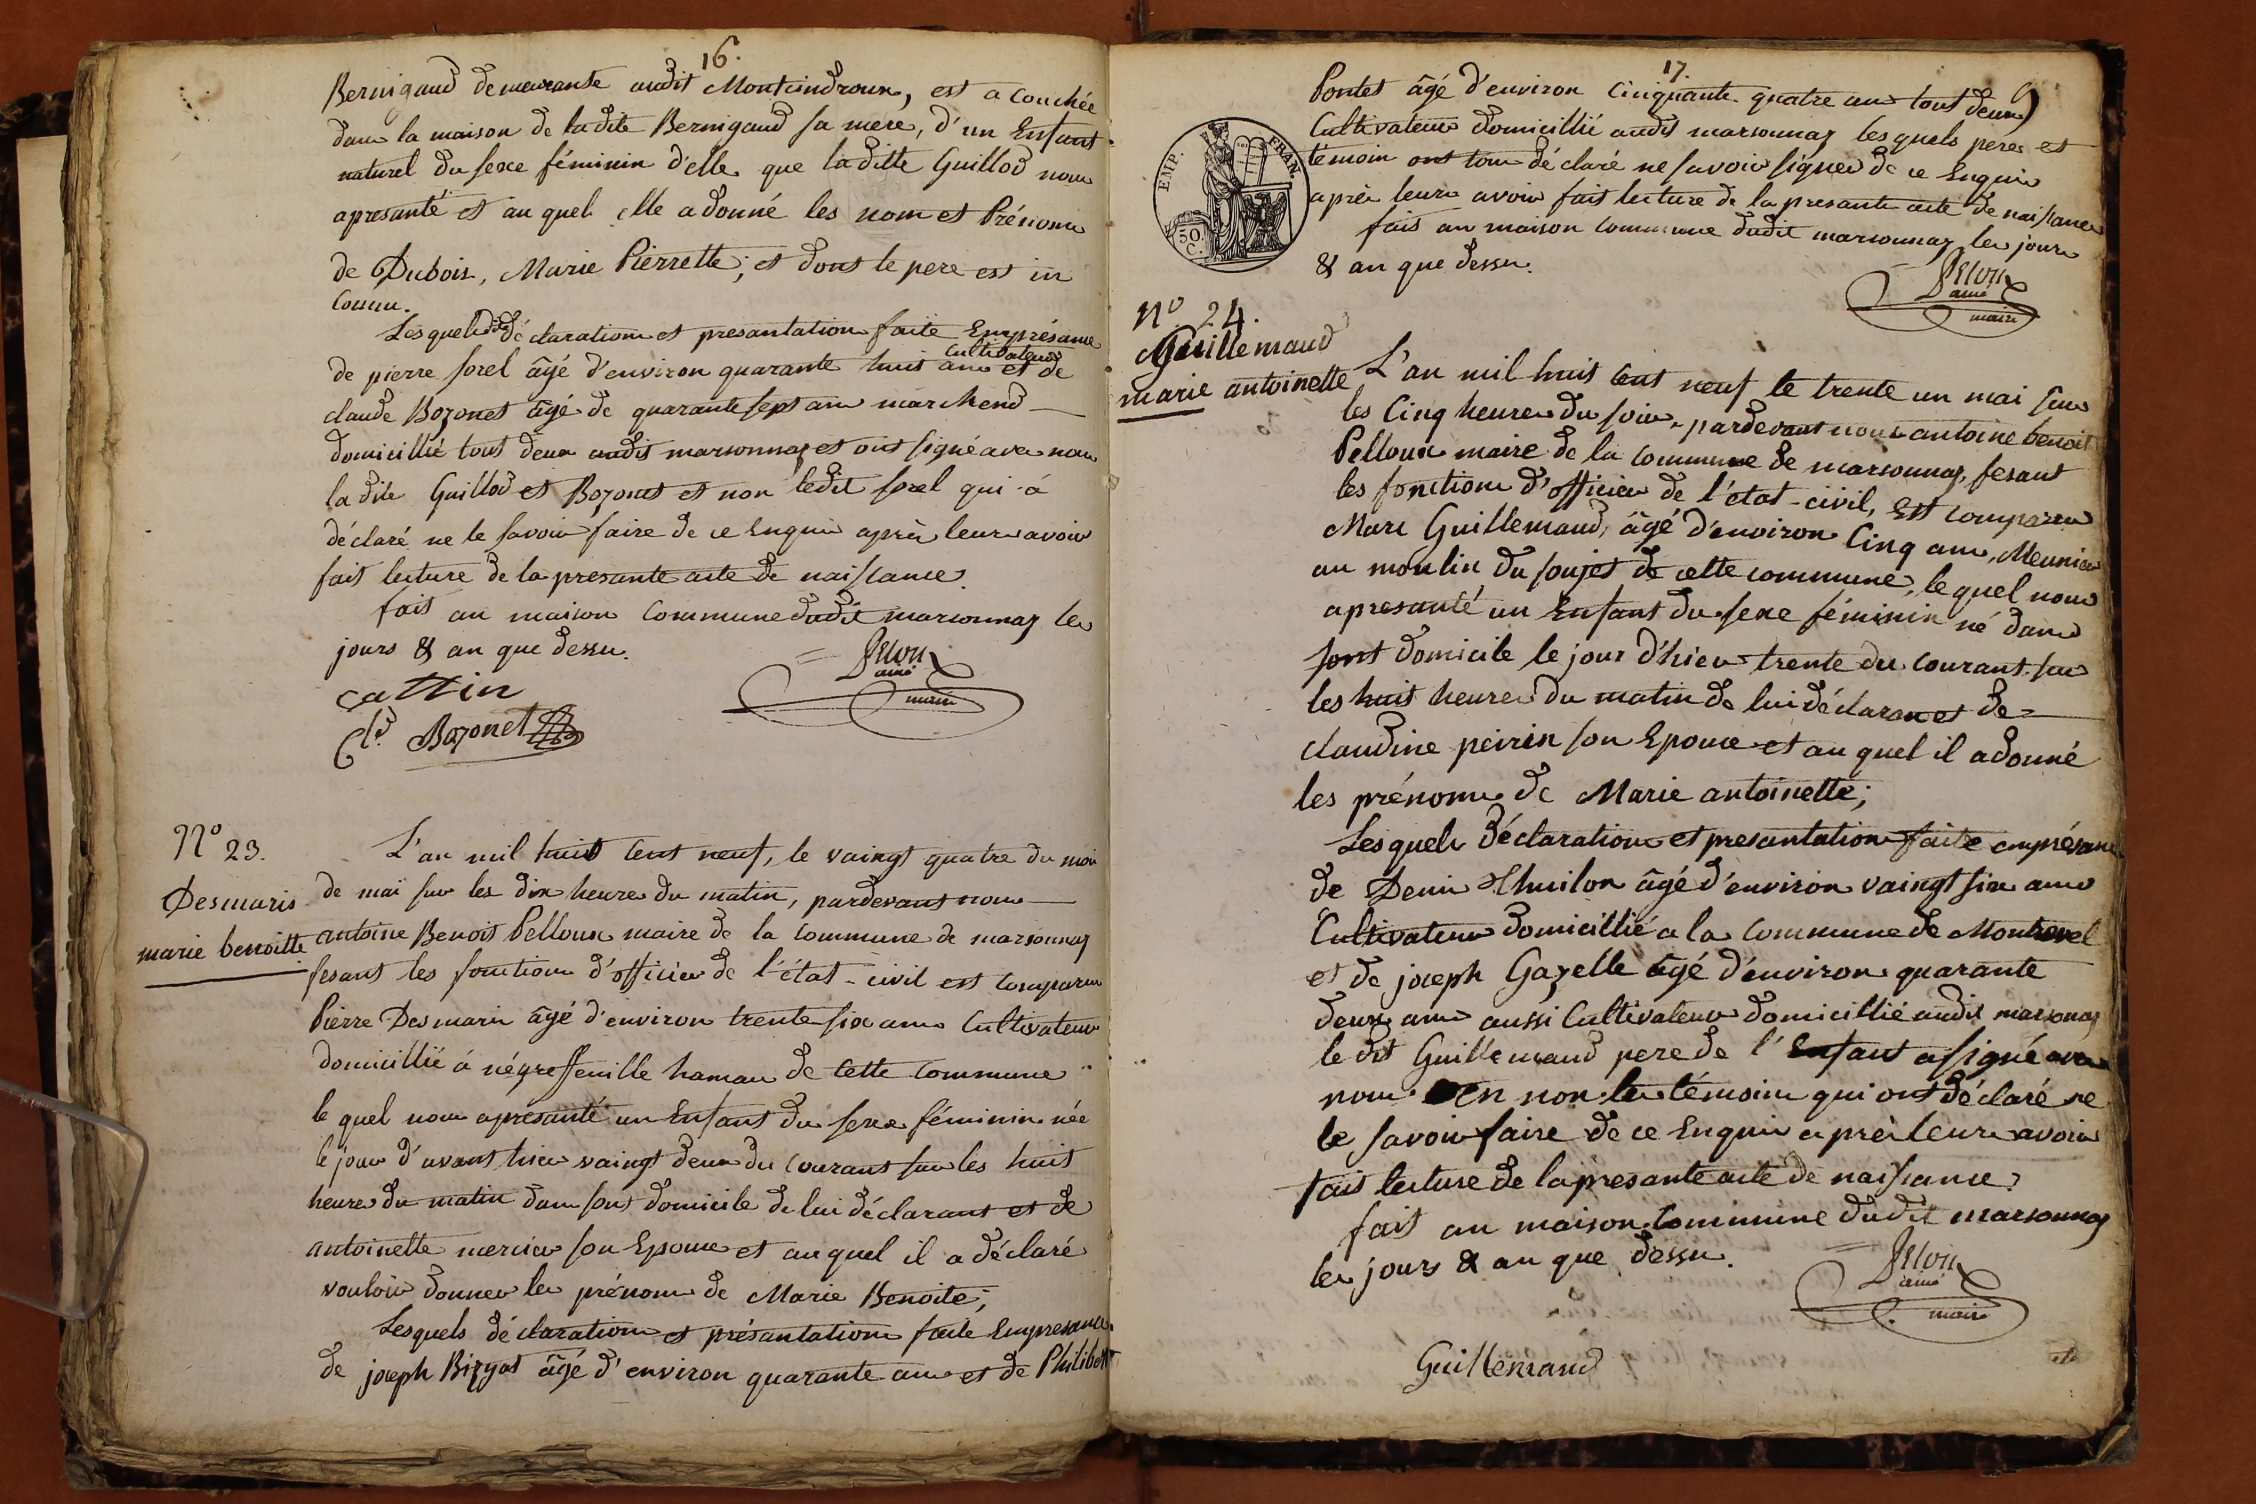 16.
Bernigaud demeurante audit Montcindroux, est a couchée
dans la maison de ladite Bernigaud sa mere, d'un Enfant
naturel du sexe féminin d'elle que la ditte Guillod nous
apresanté et au quel elle a donné les nom et Prénoms
de Dubois, Marie Pierrette; et dont le pere est in
connu.
Les quels déclaration et presantation faite Emprésance
de pierre sorel âgé d'environ quarante huit ans cultivateur et de
claude Bozonet âgé de quarante sept ans marchend
domicillié tout deux audit marsonnaz et ont signé avec nous
la dite Guillod et Bozonet et non ledit sorel qui á
déclaré ne le savoir faire de ce Enquis après leurs avoir
fait lecture de la presante acte de naissance.
fait an maison Commune dudit marsonnaz les
jours & an que dessu.
aîné
maire
cattin
Cl.de Bozonet
N.o 23.
Desmaris
marie benoitte
L'an mil huit cent neuf, le vaingt quatre du mois
de mai sur les dix heures du matin, pardevant nous
antoine Benoit Pelloux maire de la Commune de marsonnaz
fesant les fonctions d'officier de l'état-civil est comparu
Pierre Desmaris âgé d'environ trente six ans Cultivateur
domicillié á négrefeuille hamau de cette Commune
le quel nous apresanté un Enfant du sexe féminin née
le jour d'avant hier vaingt deux du courant sur les huit
heures du matin dans sont domicile de lui déclarant et de
antoinette mercier son Epouse et au quel il a déclaré
vouloir donner les prénoms de Marie Benoite;
Lesquels déclaration et présantation faite Empresance
de joseph Bizyat âgé d'environ quarante ans et de Philibert
17.
9
Pontet âgé d'environ Cinquante quatre ans tout deux
Cultivateurs domicillié audit marsonnaz les quels peres et
témoin ont tous déclaré ne savoir signer de ce Enquis
après leurs avoir fait lecture de la presante acte de naissance
fait an maison Commune dudit marsonnaz les jours
& an que dessu.
EMP. FRAN.
50 C.
aîné
maire
N.o 24.
Guillemaud
marie antoinette
L'an mil huit cent neuf le trente un mai sur
les Cinq heures du soir, pardevant nous antoine benoit
Pelloux maire de la commune de marsonnaz, fesant
les fonctions d'officier de l'état-civil, Est comparu
Marc Guillemaud, âgé d'environ Cinq ans, Meunier
au moulin du soujet de cette commune, le quel nous
apresanté un Enfant du sexe féminin né dans
sont domicile le jour d'hier trente du courant sur
les huit heures du matin de lui déclarant et de
claudine peirin son Epouse et au quel il a donné
les prénoms de Marie antoinette;
Les quels déclaration et presantation faite emprésance
de Denis Thuilon âgé d'environ vaingt six ans
Cultivateur domicillié a la Commune de Montrevel
et de joseph Gazelle âgé d'environ quarante
deux ans aussi Cultivateur domicillié audit marsonnaz
le dit Guillemaud pere de l'Enfant a signé avec
nous en non les témoins qui ont déclaré ne
le savoir faire de ce Enquis après leurs avoir
fait lecture de la presante acte de naissance.
fait an maison Commune dudit marsonnaz
les jours & an que dessu.
aîné
maire
Guillemaud